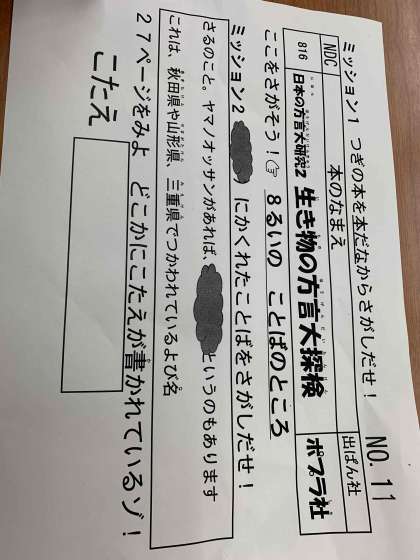 NO. 11
ミッション1 つぎの本を本だなからさがしだせ！
NDC 本のなまえ 出ぱん社
816 日本の方言大研究2 生き物の方言大探検 ポプラ社
ここをさがそう！☞ 8るいの ことばのところ
ミッション2 にかくれたことばをさがしだせ！
さるのこと。ヤマノオッサンがあれば、 というのもあります
これは、秋田県や山形県、三重県でつかわれているよび名
27ページをみよ どこかにこたえが書かれているゾ！
こたえ